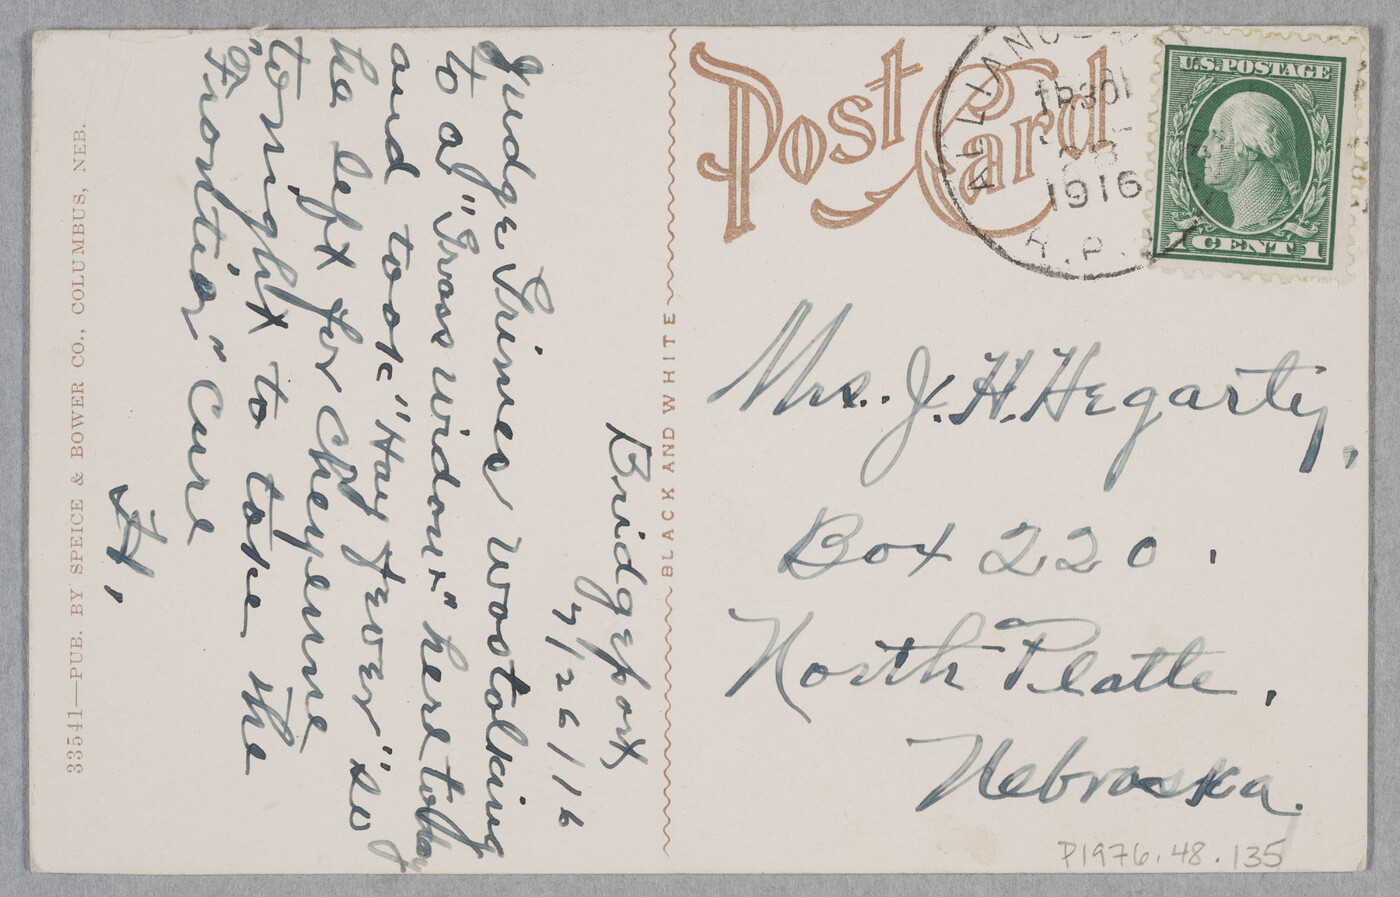 Post Card
ALLIANCE
TR 301
1916
R.P.
U.S. POSTAGE
1 CENT 1
Bridgeport,
7/26/16
Judge Grimes was talking
to a "Grass widow" here today
and took "Hay Fever" so
he left for Cheyenne
tonight to take the
"Frontier" Cure
H,
BLACK AND WHITE
Mrs. J. H. Hegarty,
Box 220.
North Platte,
Nebraska.
P1976.48.135
33541—PUB. BY SPEICE & BOWER CO., COLUMBUS, NEB.